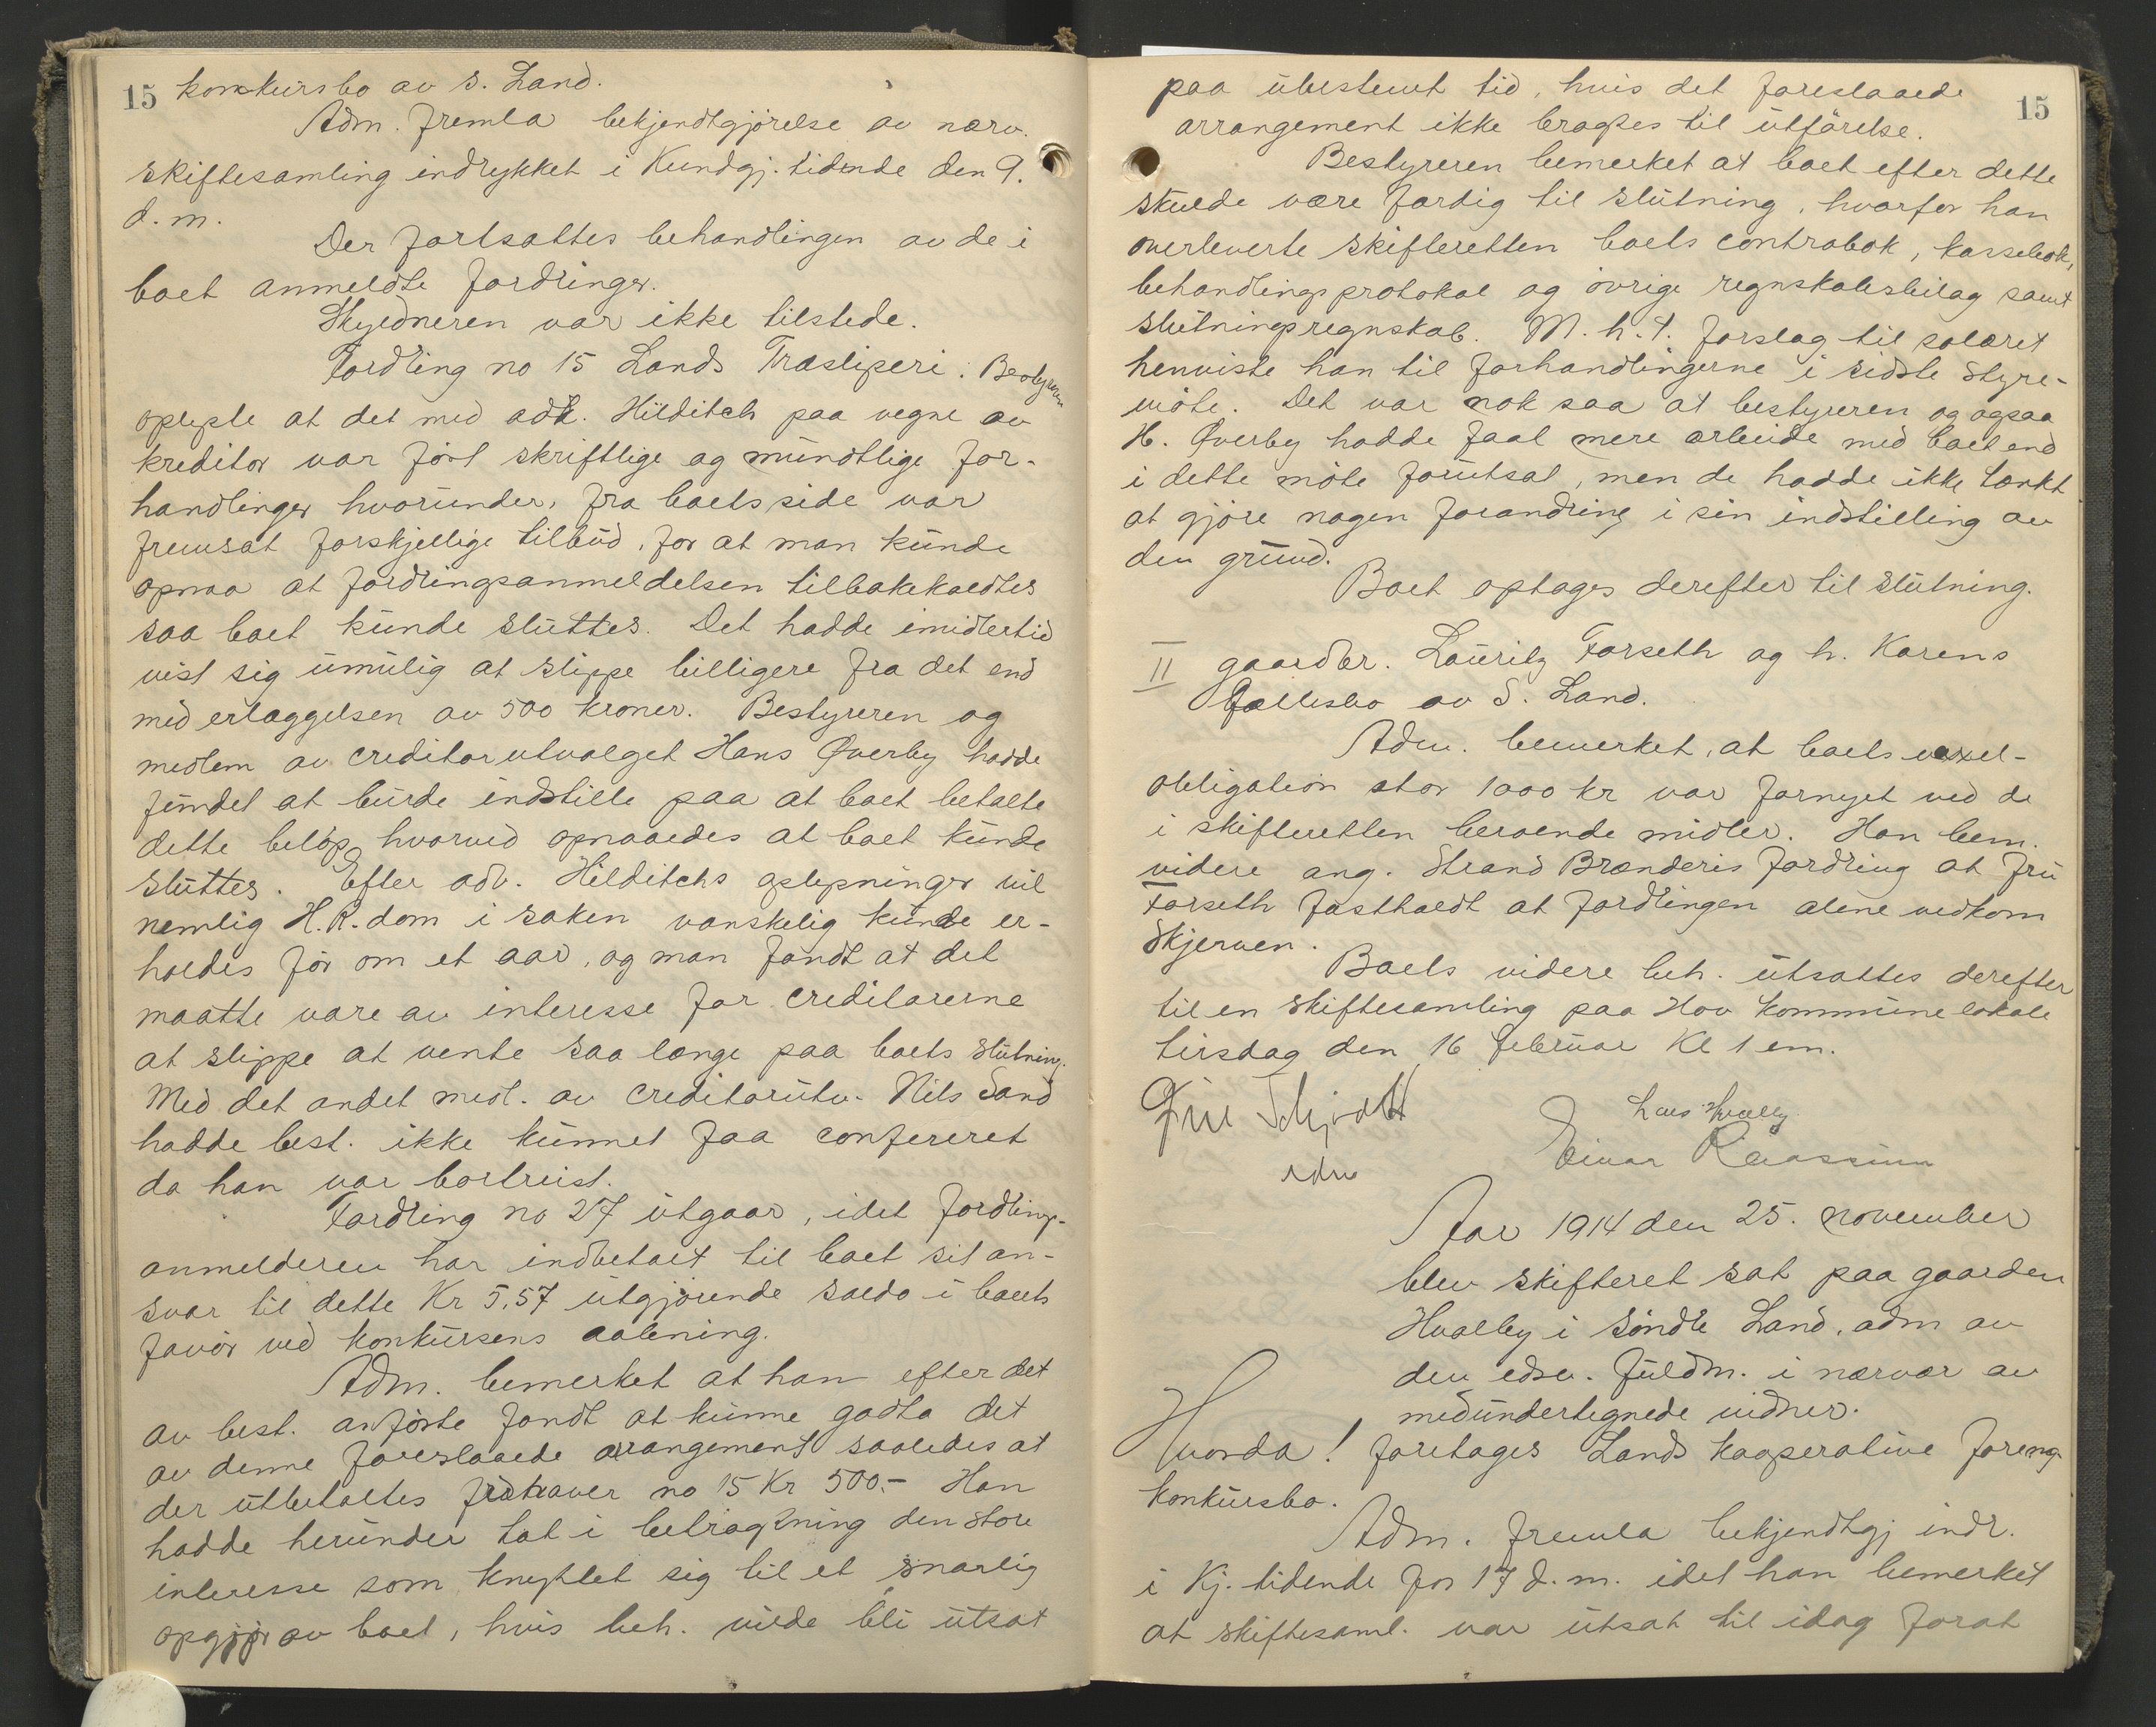 15 konkursbo av S. Land.
Adm. fremla bekjendtgjørelse av nærv.
skiftesamling indrykket i Kundgj. tidende den 9.
d. m.
Der fortsattes behandlingen av de i
boet anmeldte fordringer.
Skyldneren var ikke tilstede.
Fordring no 15 Lands Træsliperi. Bestyreren
oplyste at det med adv. Hilditch paa vegne av
kreditor var ført skriftlige og mundtlige for-
handlinger hvorunder, fra boets side var
fremsat forskjellige tilbud, for at man kunde
opnaa at fordringsanmeldelsen tilbakekaldtes
saa boet kunde sluttes. Det hadde imidlertid
vist sig umulig at slippe billigere fra det end
med erlæggelsen av 500 kroner. Bestyreren og
medlem av creditorutvalget Hans Øverby hadde
fundet at burde indstille paa at boet betalte
dette beløp, hvorved opnaaedes at boet kunde
sluttes. Efter adv. Hilditchs oplysninger vil
nemlig H.R.dom i saken vanskelig kunde er-
holdes før om et aar, og man fandt at det
maatte være av interesse for creditorerne
at slippe at vente saa længe paa boets slutning.
Med det andet medl. av creditorutv. Nils Sand
hadde best. ikke kunnet faa confereret
da han var bortreist.
Fordring no 27 utgaar, idet fordrings-
anmelderen har indbetalt til boet sit an-
svar til dette Kr 5,57 utgjørende saldo i boets
favør ved konkursens aabning.
Adm. bemerket at han efter det
av best. anførte fandt at kunne godta det
av denne foreslaaede arrangement saaledes at
der utbetaltes fordr.haver no 15 Kr 500.- Han
hadde herunder tat i betragtning den store
interesse som knyttet sig til et snarlig
opgjør av boet, hvis beh. vilde bli utsat
15
paa ubestemt tid, hvis det foreslaaede
arrangement ikke bragtes til utførelse.
Bestyreren bemerket at boet efter dette
skulde være færdig til slutning, hvorfor han
overleverte skifteretten boets contrabok, kassebok,
behandlingsprotokol og øvrige regnskabsbilag samt
slutningsregnskab. M. h. t. forslag til salæret
henviste han til forhandlingerne i sidste styre-
møte. Det var nok saa at bestyreren og ogsaa
H. Øverby hadde faat mere arbeide med boet end
i dette møte forutsat, men de hadde ikke tænkt
at gjøre nogen forandring i sin indstilling av
den grund.
Boet optages derefter til slutning.
II gaardbr. Lauritz Forseth og h. Karens
fællesbo av S. Land.
Adm. bemerket, at boets vexel-
obligation stor 1000 kr var fornyet ved de
i skifteretten beroende midler. Han bem.
videre ang. Strand Brænderis fordring at fru
Forseth fastholdt at fordringen alene vedkom
Skjerven.
Boets videre beh. utsattes derefter
til en skiftesamling paa Hov kommunelokale
tirsdag den 16 februar Kl 1 em.
Schjødt
adm
Lars Hvalby
Einar Rasmussen
Aar 1914 den 25. november
blev skifteret sat paa gaarden
Hvalby i søndre Land, adm av
den edsv. fuldm. i nærvær av
medundertegnede vidner.
Hvorda! foretages Lands kooperative foreng.
konkursbo.
Adm. fremla bekjendtgj indr.
i Kj. tidende for 17 d. m. idet han bemerket
at skiftesaml. var utsat til idag forat